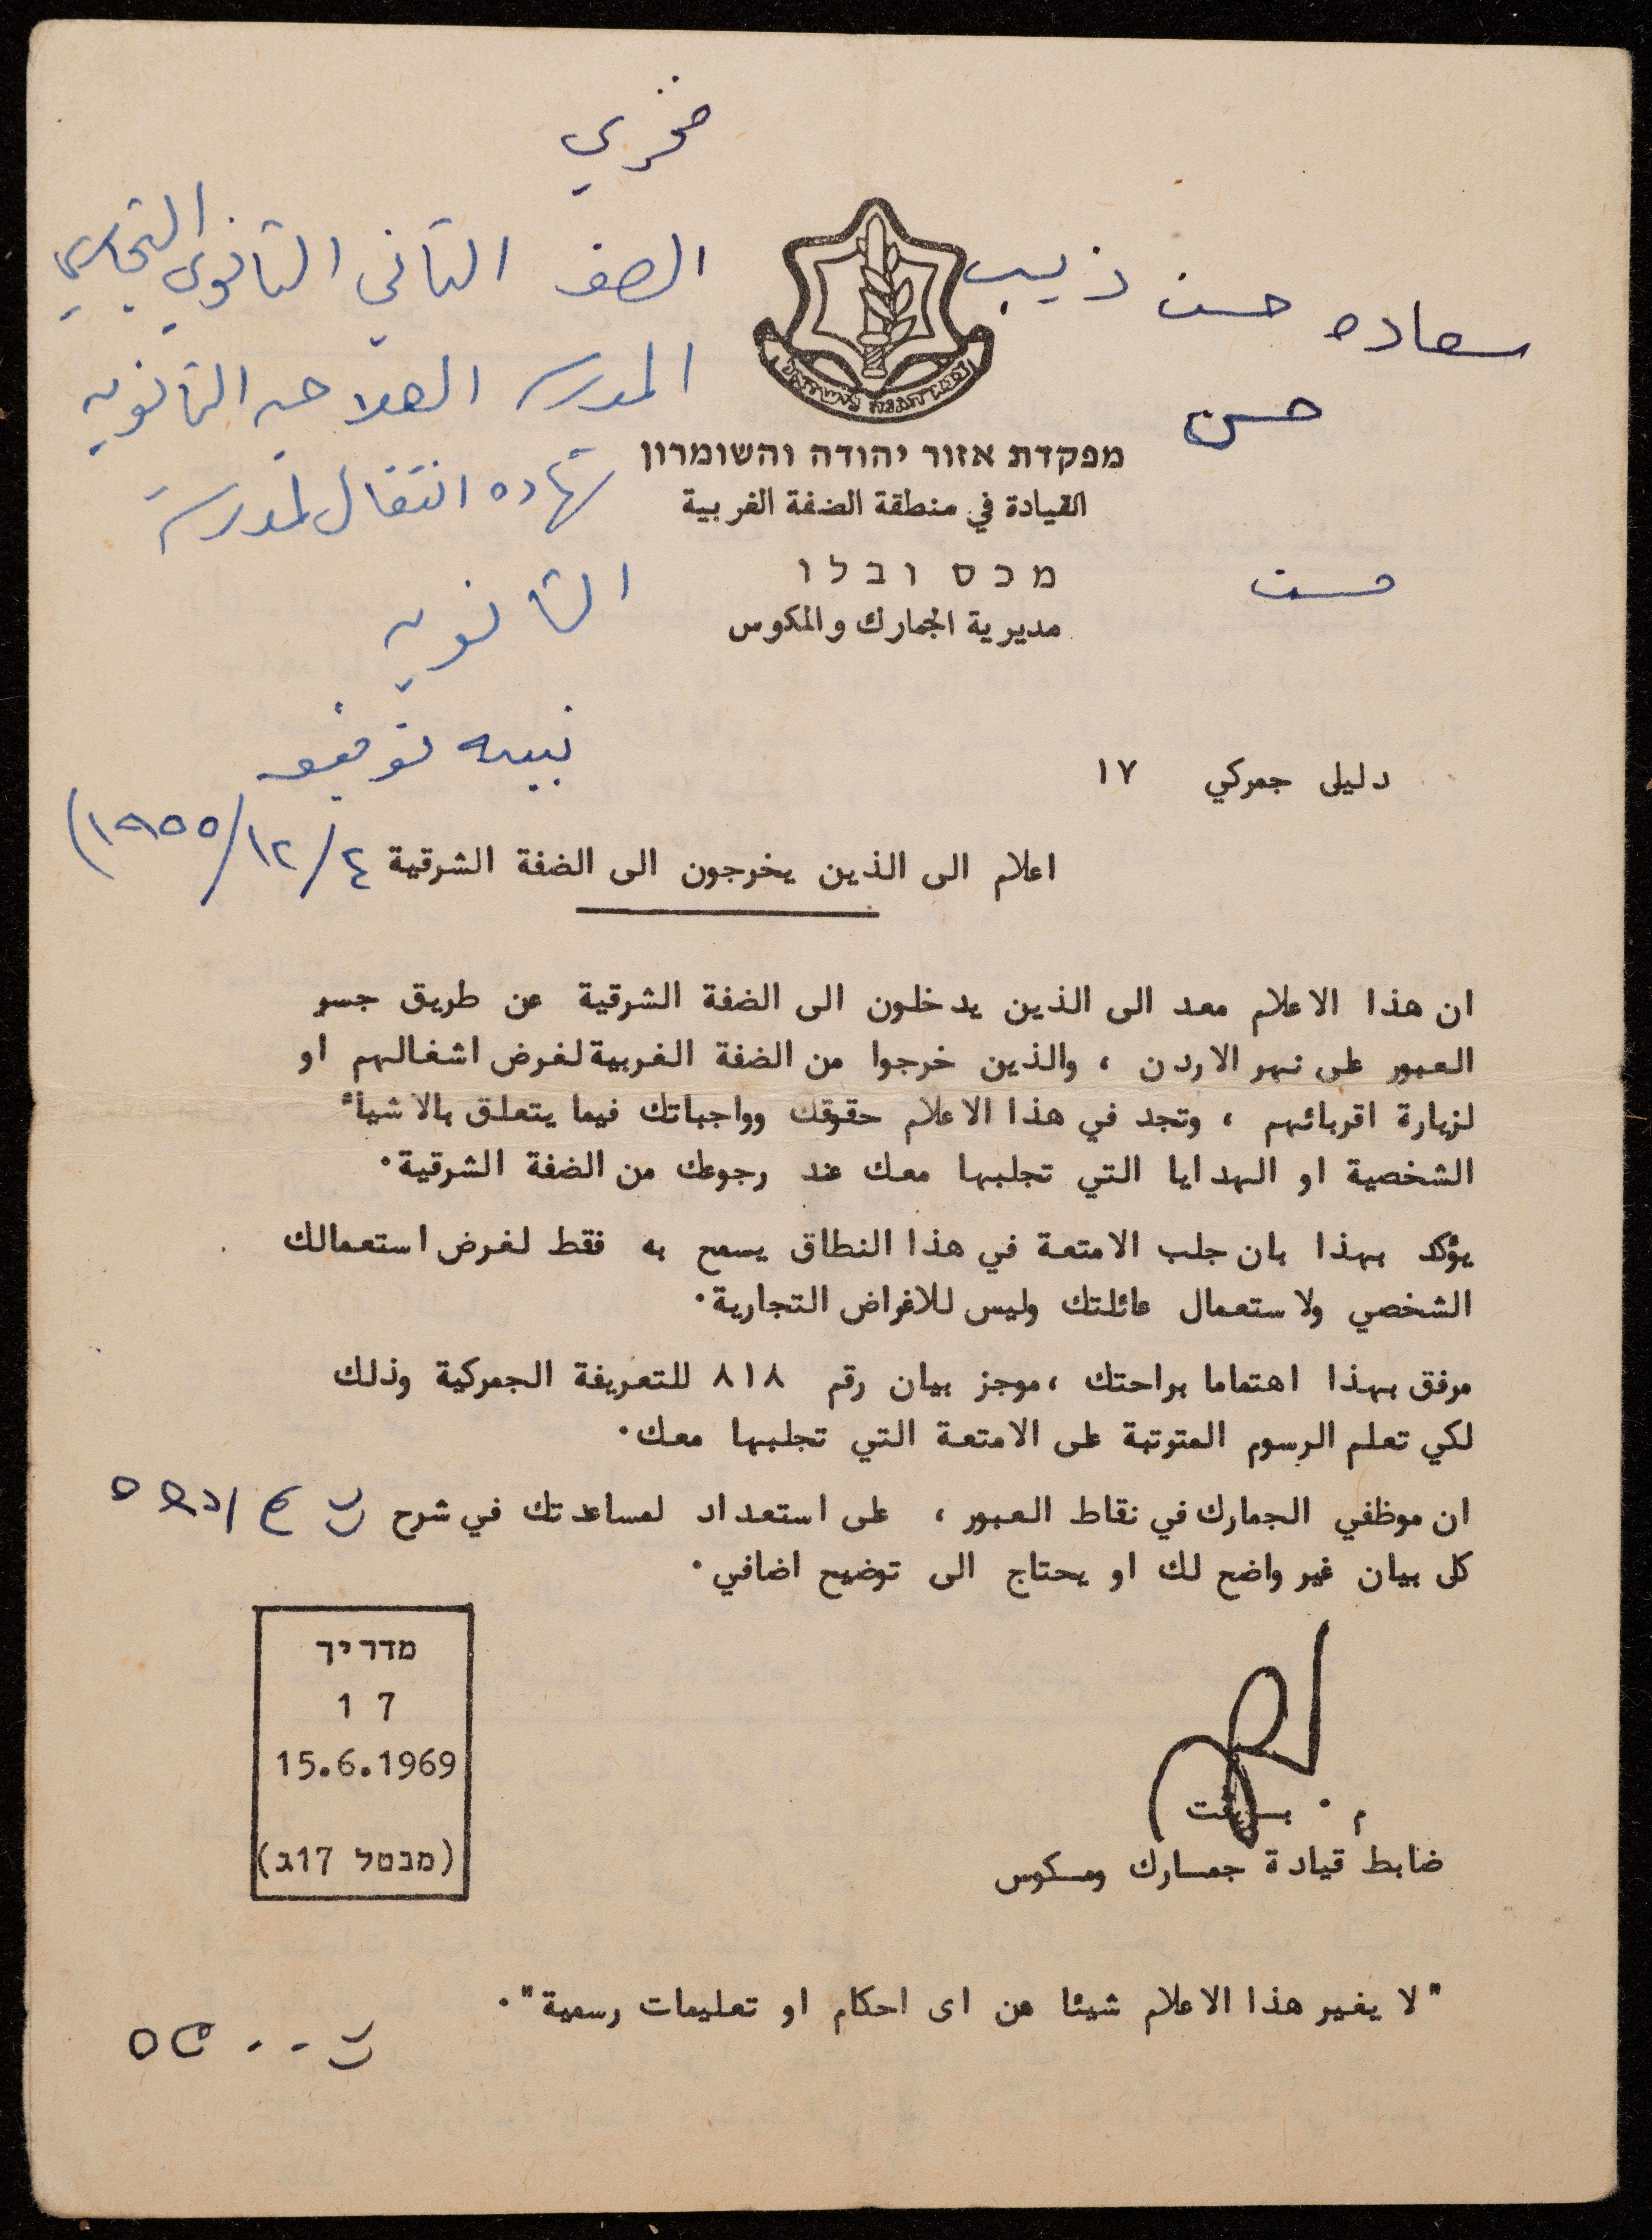 فخري
الصف الثاني الثانوي التجاري
المدرسه الصلاحيه الثانويه
شهاده انتقال لمدرسة
الثانويه
نبيه توفيق
٤/١٢/١٩٥٥)
سعاده حسن ذيب
حسن
حسن
צבא הגנה לישראל
מפקדת אזור יהודה והשומרון
القيادة في منطقة الضفة الغربية
מכס ובלו
مديرية الجمارك والمكوس
دليل جمركي ١٧
اعلام الى الذين يخرجون الى الضفة الشرقية
ان هذا الاعلام معد الى الذين يدخلون الى الضفة الشرقية عن طريق جسر
العبور على نهر الاردن ، والذين خرجوا من الضفة الغربية لغرض اشغالهم او
لزيارة اقربائهم ، وتجد في هذا الاعلام حقوقك وواجباتك فيما يتعلق بالاشياء
الشخصية او الهدايا التي تجلبها معك عند رجوعك من الضفة الشرقية٠
يؤكد بهذا بان جلب الامتعة في هذا النطاق يسمح به فقط لغرض استعمالك
الشخصي ولاستعمال عائلتك وليس للاغراض التجارية٠
مرفق بهذا اهتماما براحتك ،موجز بيان رقم ٨١٨ للتعريفة الجمركية وذلك
لكي تعلم الرسوم المتوتبة على الامتعة التي تجلبها معك٠
ان موظفي الجمارك في نقاط العبور ، على استعداد لمساعدتك في شرح
كل بيان غير واضح لك او يحتاج الى توضيح اضافي٠
מדריך
17
15.6.1969
(מבטל 17ג)
ضابط قيادة جمارك ومكوس
"لا يغير هذا الاعلام شيئا من اى احكام او تعليمات رسمية"٠